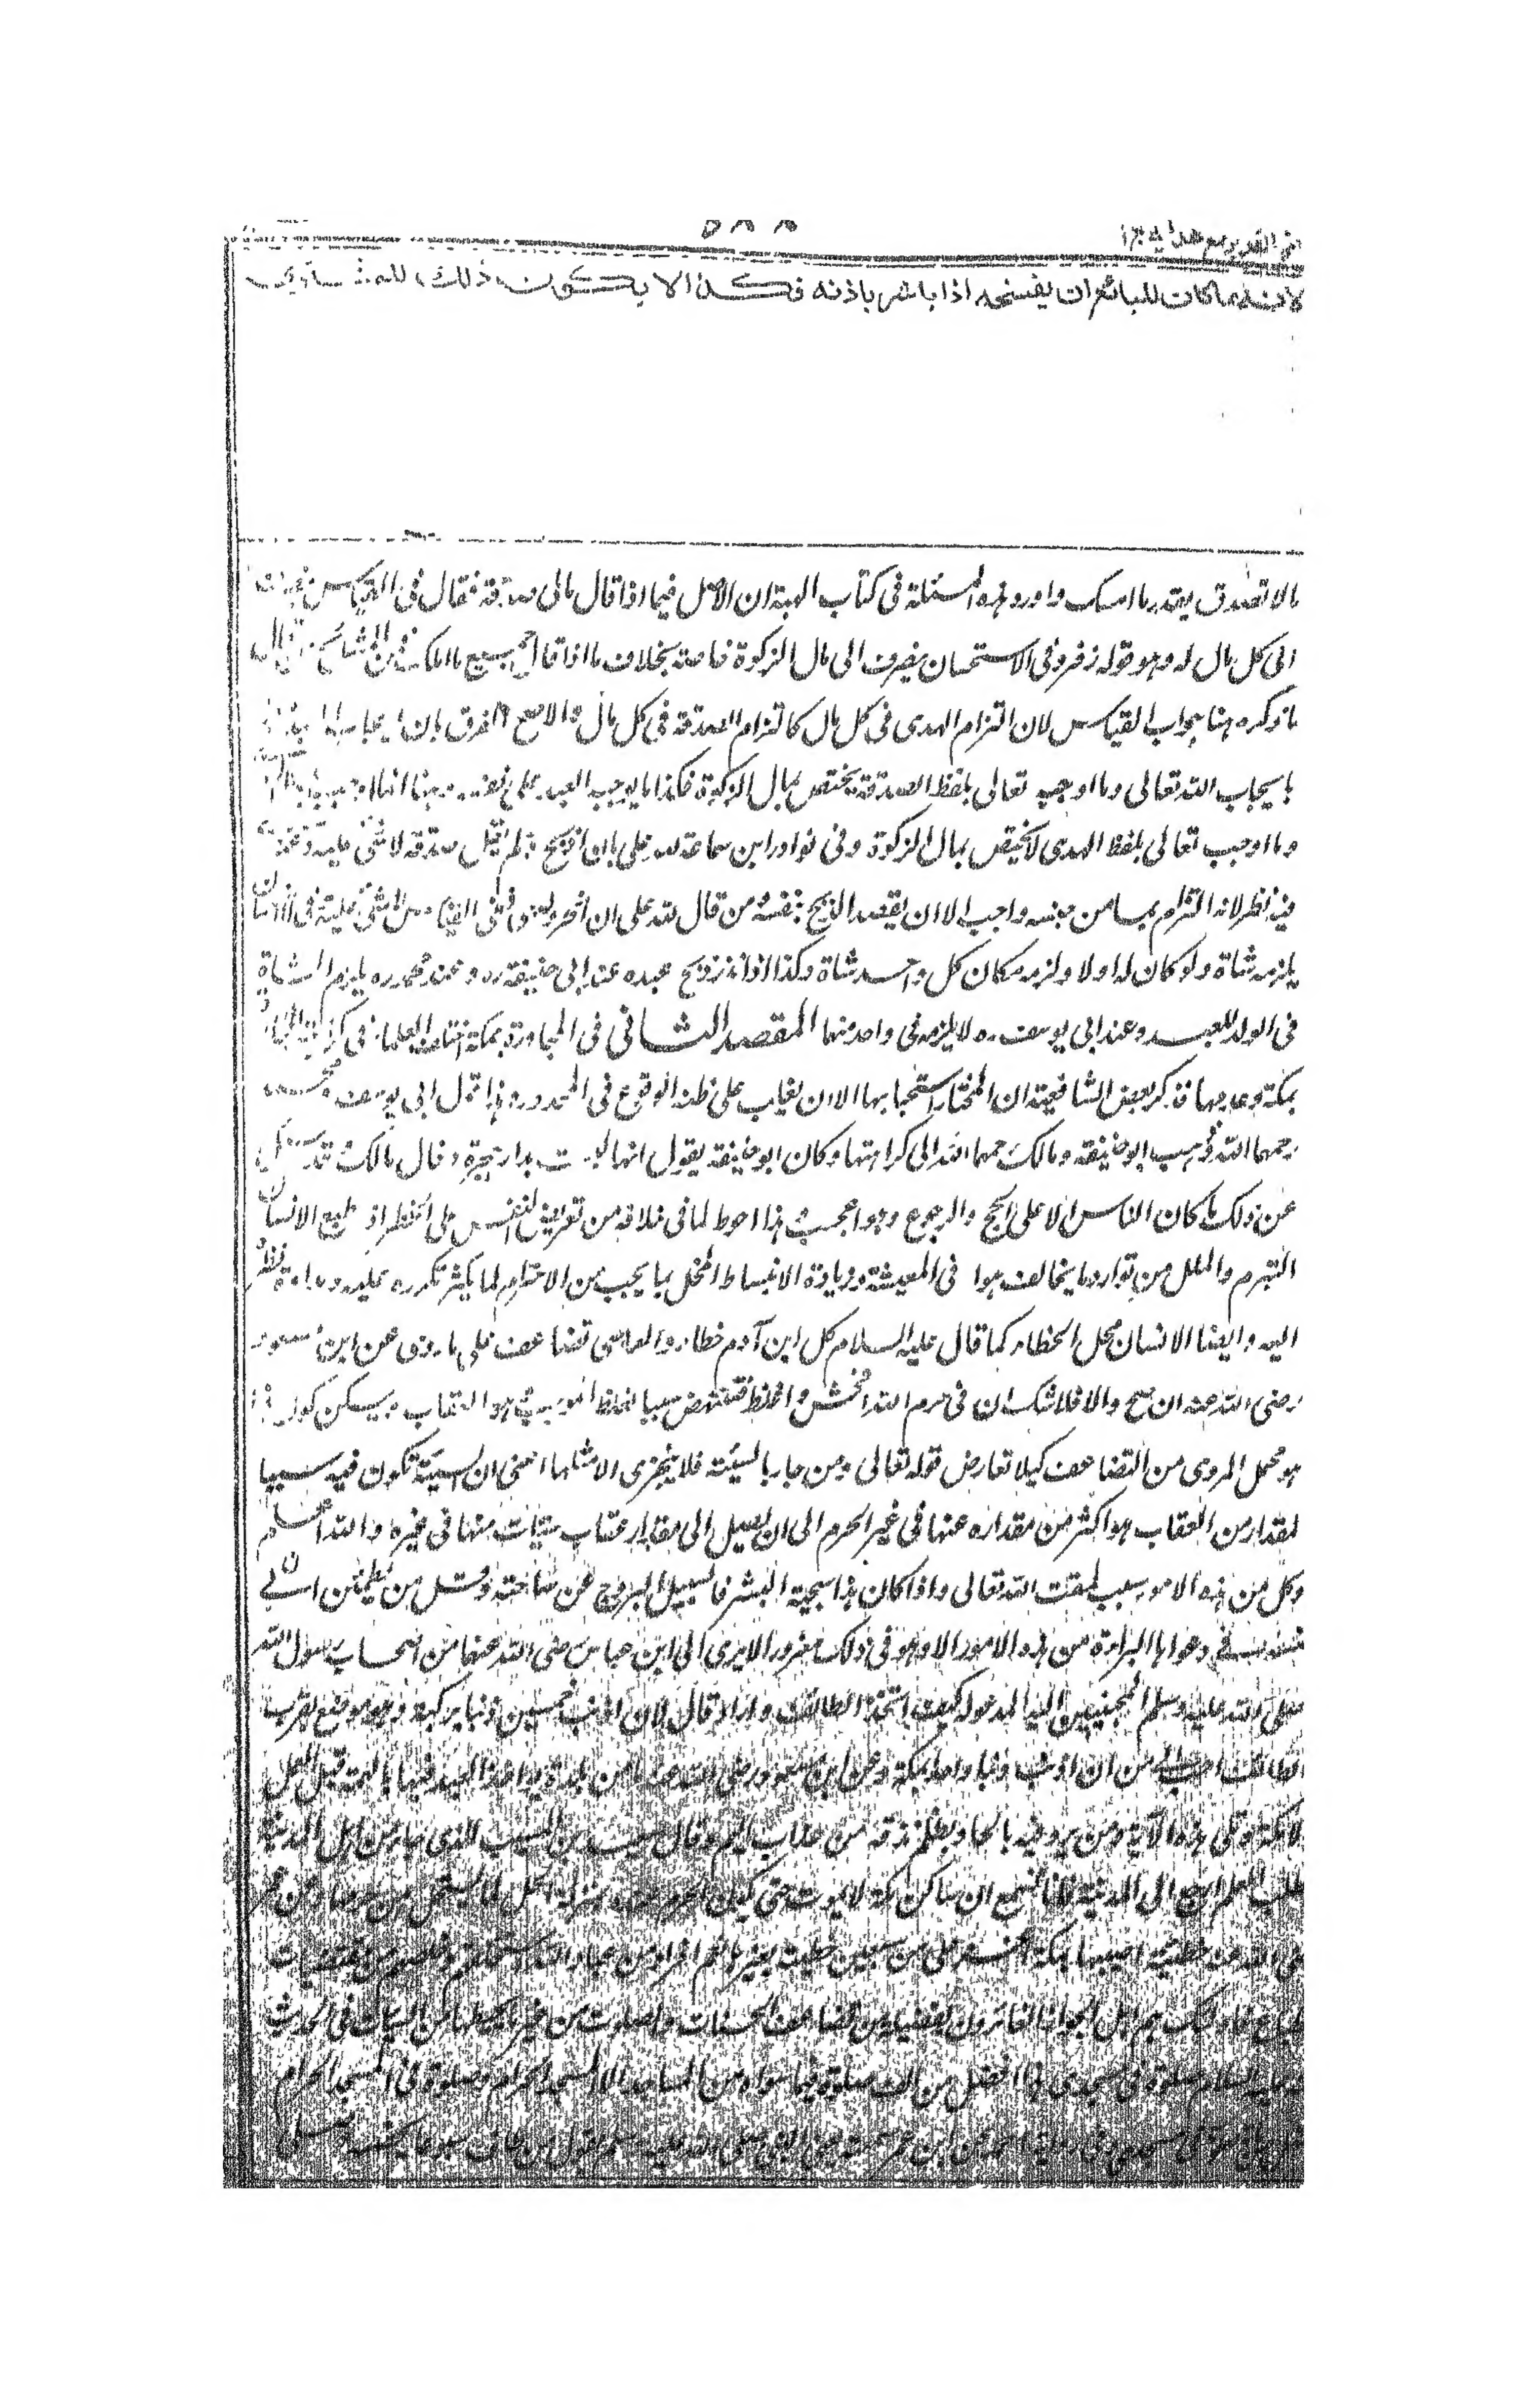 فتح القدير مع هدايه ج ١
٥٨٨
لانه ما كان للبائع ان يفسخه اذا باشر باذنه فكذا لا يكون ذلك للمشتري
مالا تصدق بقدر ما امسك واورد هذه المسئلة فى كتاب الهبة ان الاصل فيما اذا قال مالى صدقة فقال فى القياس
الى كل مال له وهو قول زفر وفى الاستحسان يصرف الى مال الزكوة خاصة بخلاف ما اذا قال جميع ما املك فمن المشائخ من قال
ما ذكره هنا جواب القياس لان التزام الهدى فى كل مال كالتزام الصدقة فى كل مال والاصح الفرق بان ايجاب العبد
بايجاب الله تعالى وما اوجبه تعالى بلفظ الصدقة يختص بمال الزكوة فكذا ما يوجبه العبد على نفسه
وما اوجب تعالى بلفظ الهدى لا يختص بمال الزكوة وفى نوادر ابن سماعة لله على ان اذبح ولم يقل صدقة لا شئ عليه
فيه نظر لانه التزام بما من جنسه واجب الا ان يقصد الذبح بنفسه ومن قال لله على ان انحر ولدى ففى القياس لا شئ عليه وفى الاستحسان
يلزمه شاة ولو كان له اولاد لزمه مكان كل واحد شاة وكذا اذا نذر ذبح عبده عند ابى حنيفة ره وعند محمد ره يلزمه الشاة
فى الولد لا العبد وعند ابى يوسف ره لا يلزمه فى واحد منهما المقصد الثانى فى المجاورة بمكة اختلف العلماء فى كراهة المجاورة
بمكة وعدمها فذكر بعض الشافعية ان المختار استحبابها الا ان يغلب على ظنه الوقوع فى المحذور وهذا قول ابى يوسف ومحمد
رحمهما الله وذهب ابو حنيفة ومالك رحمهما الله الى كراهتها وكان ابو حنيفة يقول انها ليست بدار هجرة وقال مالك وقد سئل
عن ذلك ما كان الناس الا على الحج والرجوع وهو اعجب وهذا احوط لما فى خلافه من تعريض النفس على الخطر اذ طبع الانسان
التبرم والملل من توارد ما يخالف هوا فى المعيشة وزيادة الانبساط المخل بما يجب من الاحترام لما يكثر تكرره عليه ومداومة نظره
اليه وايضا الانسان محل الخطاء كما قال عليه السلام كل ابن آدم خطاء والمعاصى تضاعف على ما روى عن ابن مسعود
رضى الله عنه ان صح والا فلا شك ان فى حرم الله افحش واغلظ فتنهض سببا لغلظ الموجب وهو العقاب ويمكن كون هذا
هو محمل المروى من التضاعف كيلا تعارض قوله تعالى ومن جاء بالسيئة فلا يجزى الا مثلها اعنى ان السيئة تكون فيه سببا
لمقدار من العقاب هو اكثر من مقداره عنها فى غير الحرم الى ان يصل الى مقدار عقاب سيئات منها فى غيره والله اعلم
وكل من هذه الامور سبب لمقت الله تعالى واذا كان هذا سجية البشر فالسبيل النزوح عن ساحته وقل من يطمئن الى
نفسه فى دعواها البراءة من هذه الامور الا وهو فى ذلك مغرور الا يرى الى ابن عباس رضى الله عنهما من اصحاب رسول الله
صلى الله عليه وسلم المحببين اليه المدعو له كيف اتخذ الطائف دارا وقال لان اذنب خمسين ذنبا بركبة وهو موضع بقرب
الطائف احب الى من ان اذنب ذنبا واحدا بمكة وعن ابن مسعود رضى الله عنه ما من بلدة يواخذ العبد فيها بالهمة قبل العمل
الا مكة وتلى هذه الآية ومن يرد فيه بالحاد بظلم نذقه من عذاب اليم وقال سعيد بن المسيب للذى جاء من اهل المدينة
يطلب العلم ارجع الى المدينة فانا نسمع ان ساكن مكة لا يموت حتى يكون الحرم عنده بمنزلة الحل لما يستحل من حرمها وعن عمر
رضى الله عنه خطيئة اصيبها بمكة اعز على من سبعين خطيئة بغيرها نعم افراد من عباد الله
الطباع فاولئك هم اهل الجوار الفائزون بفضيلة من تضاعف الحسنات والصلوات من غير ما يحبطها من السيئات فى الحديث
عليه السلام صلوة فى مسجدى هذا افضل من الف صلوة فيما سواه من المساجد الا المسجد الحرام وصلوة فى المسجد الحرام